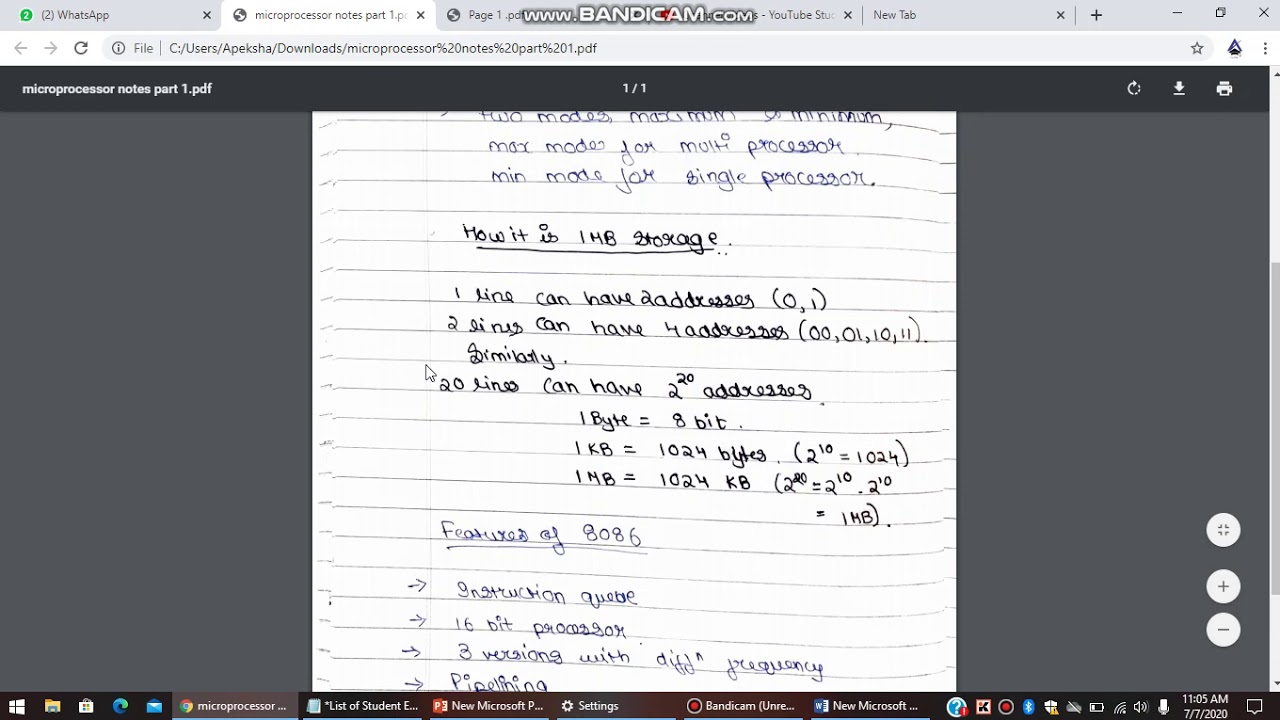 (2) WhatsApp
microprocessor notes part 1.p
Page 1 .pd
www.BANDICAM.com
- YouTube Stu
New Tab
File | C:/Users/Apeksha/Downloads/microprocessor%20notes%20part%201.pdf
microprocessor notes part 1.pdf
1 / 1
two modes, maximum & minimum,
max modes for multi processor.
min mode for single processor.
How it is 1MB storage.
1 line can have 2 addresses (0,1)
2 lines can have 4 addresses (00,01,10,11).
Similarly.
20 lines can have 2^20 addresses.
1 Byte = 8 bit.
1 KB = 1024 bytes. (2^10 = 1024)
1 MB = 1024 KB (2^20 = 2^10 . 2^10
= 1MB).
Features of 8086
→ Instruction queue
→ 16 bit processor.
→ 3 versions with diffn frequency
→ Pipelining
microprocessor ...
*List of Student E...
New Microsoft P...
Settings
Bandicam (Unre...
New Microsoft ...
11:05 AM
7/7/2020